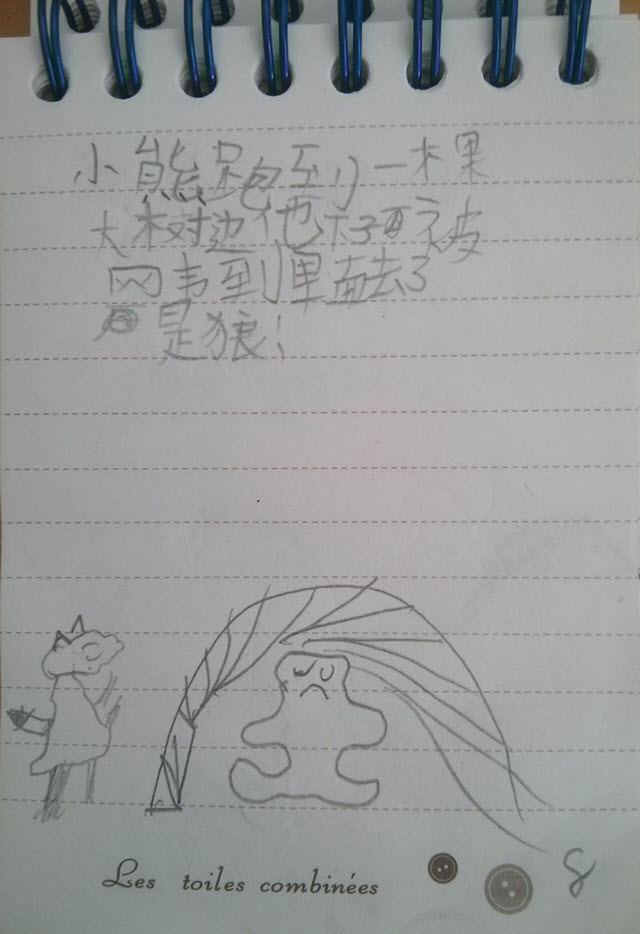 小熊跑到一棵
大树边他被
网韦到里面去了
是狼!
Les toiles combinées
8